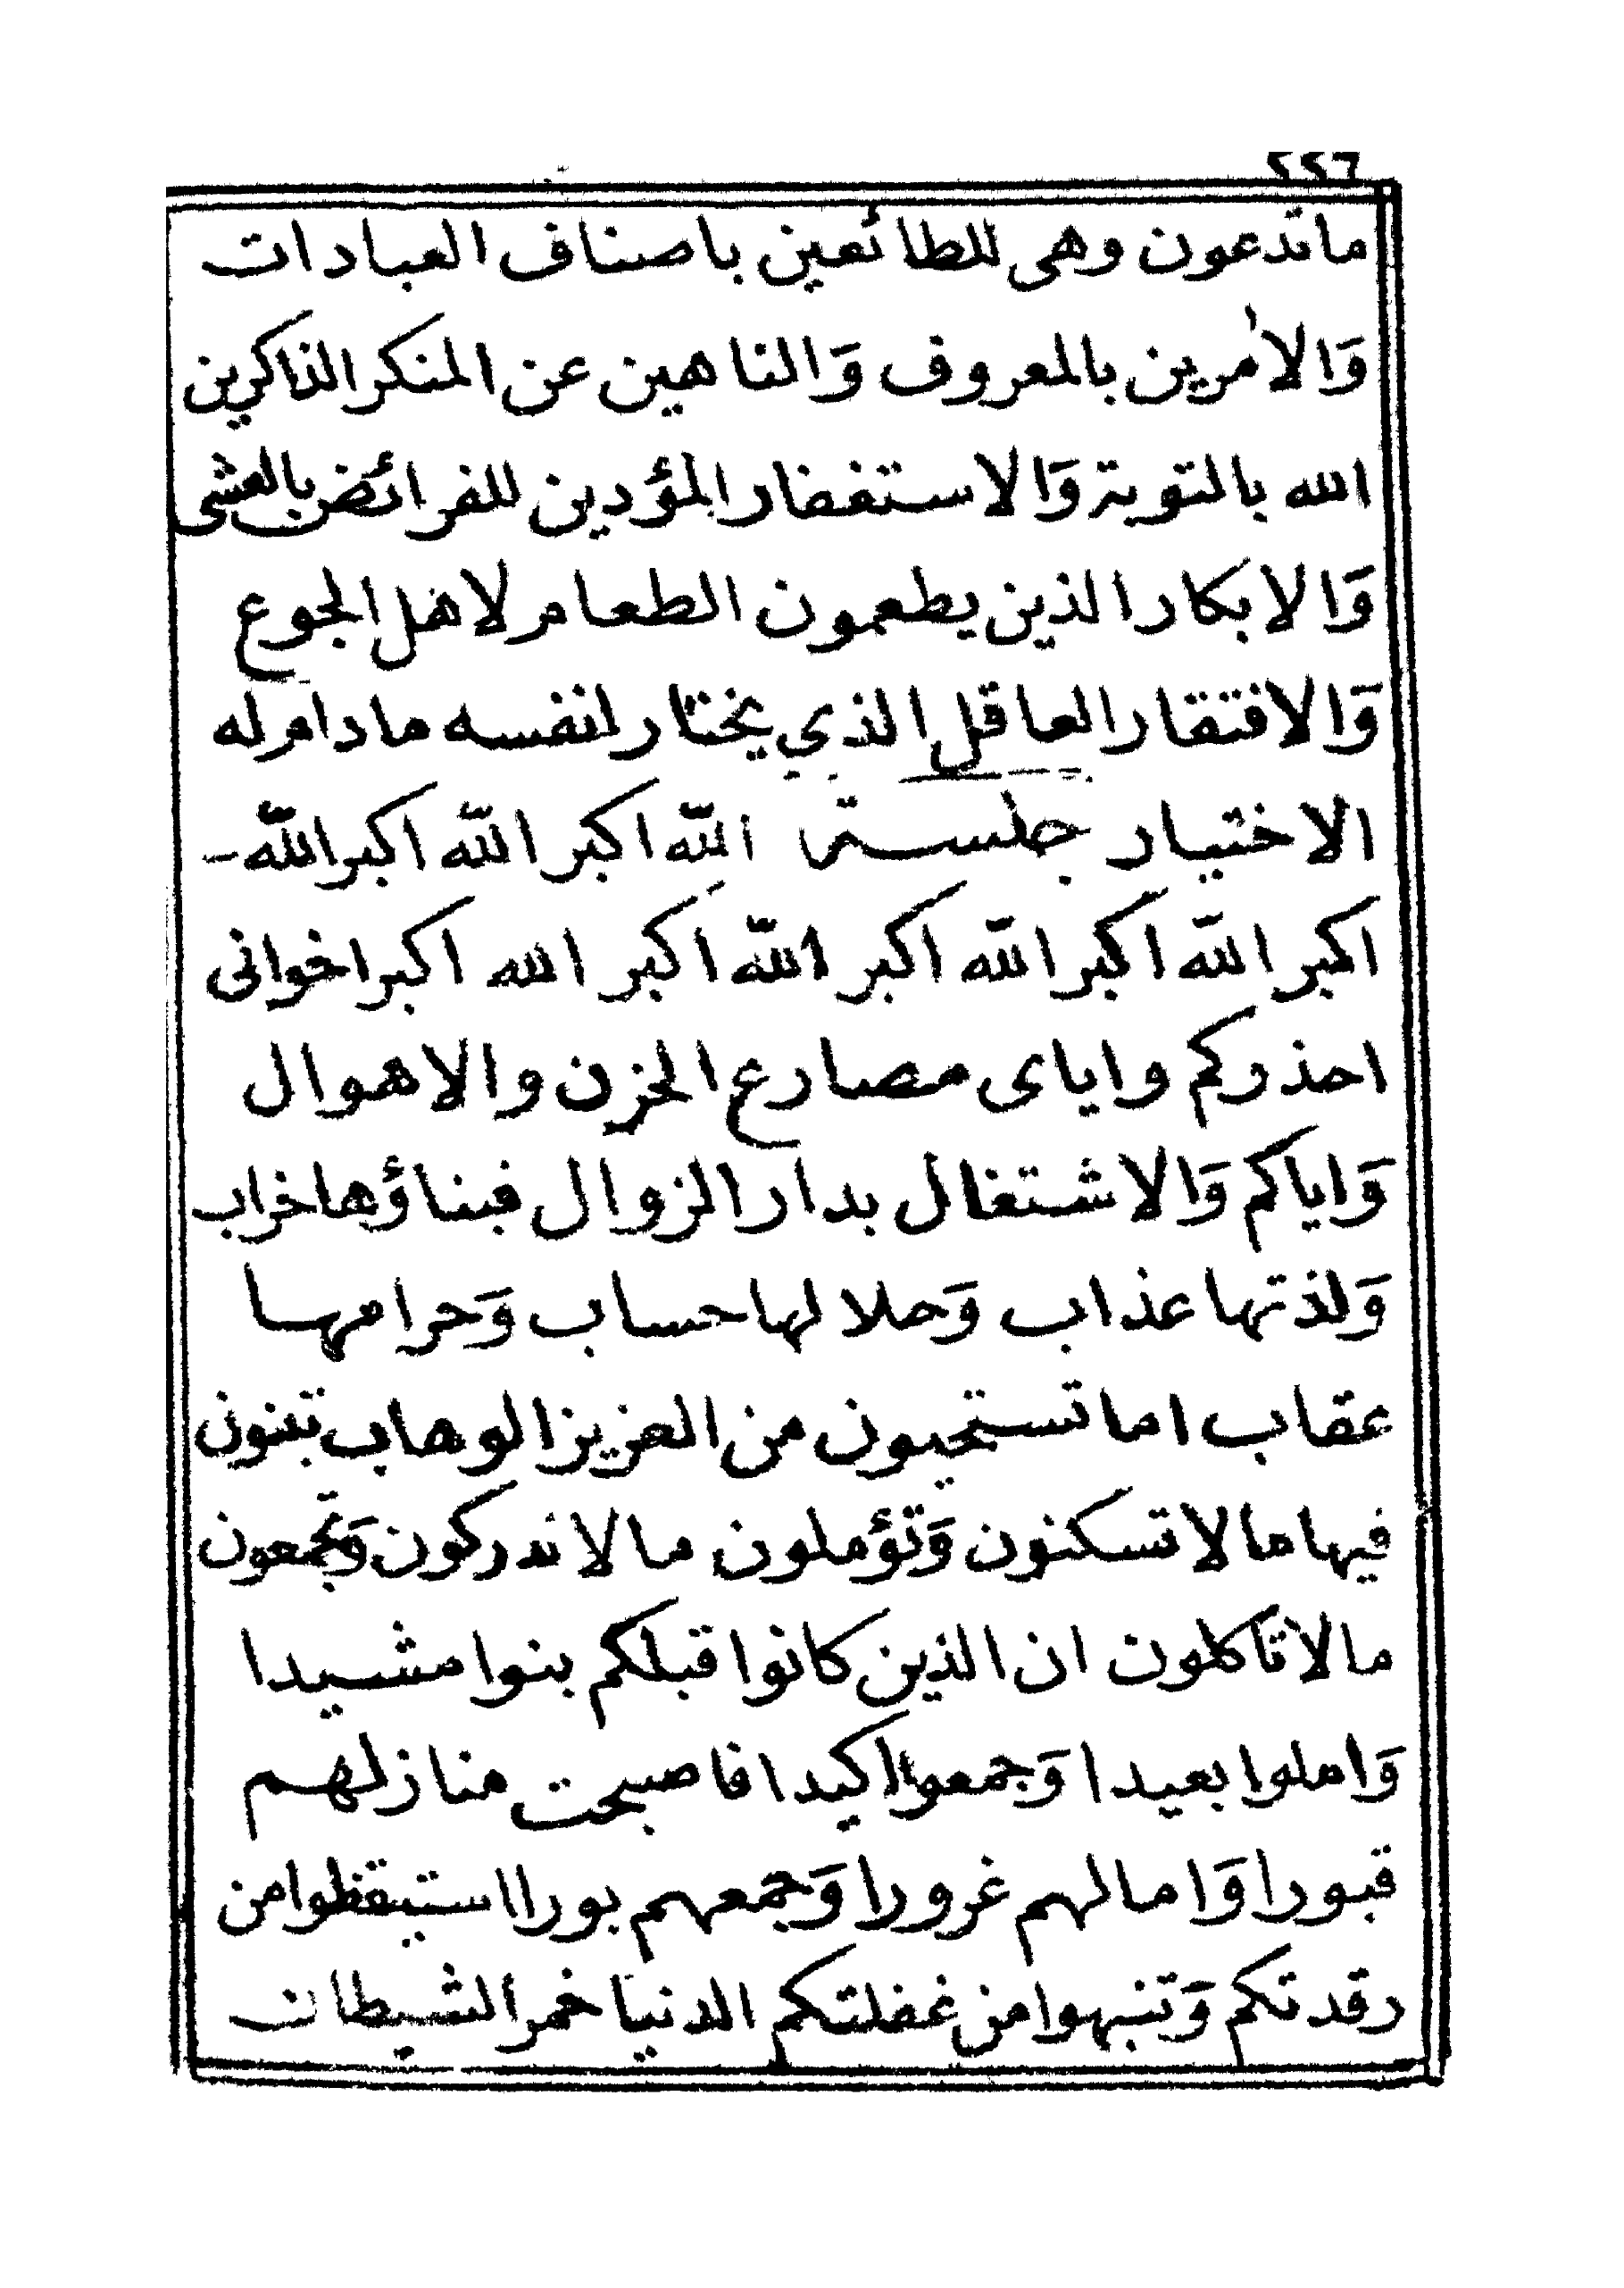 ٢٢٦
ما تدعون وهى للطائعين باصناف العبادات
وَالاٰمرين بالمعروف وَالناهين عن المنكر الذاكرين
الله بالتوبة وَالاستغفار المؤدين للفرائض بالعشى
وَالابكار الذين يطعمون الطعام لاهل الجوع
وَالافتقار العاقل الذي يختار لنفسه مادام له
الاختيار جلسة الله اكبر الله اكبر الله -
اكبر الله اكبر الله اكبر الله اكبر الله اكبر اخوانى
احذركم واياى مصارع الحزن والاهوال
وَاياكم وَالاشتغال بدار الزوال فبناؤها خراب
وَلذتها عذاب وَحلالها حساب وَحرامها
عقاب اما تستحيون من العزيز الوهاب تبنون
فيها ما لا تسكنون وَتؤملون ما لا تدركون وَتجمعون
ما لا تاكلون ان الذين كانوا قبلكم بنوا مشيدا
وَاملوا بعيدا وَجمعوا اكيدا فاصبحت منازلهم
قبورا وَامالهم غرورا وَجمعهم بورا استيقظوا من
رقدتكم وَتنبهوا من غفلتكم الدنيا خمر الشيطان